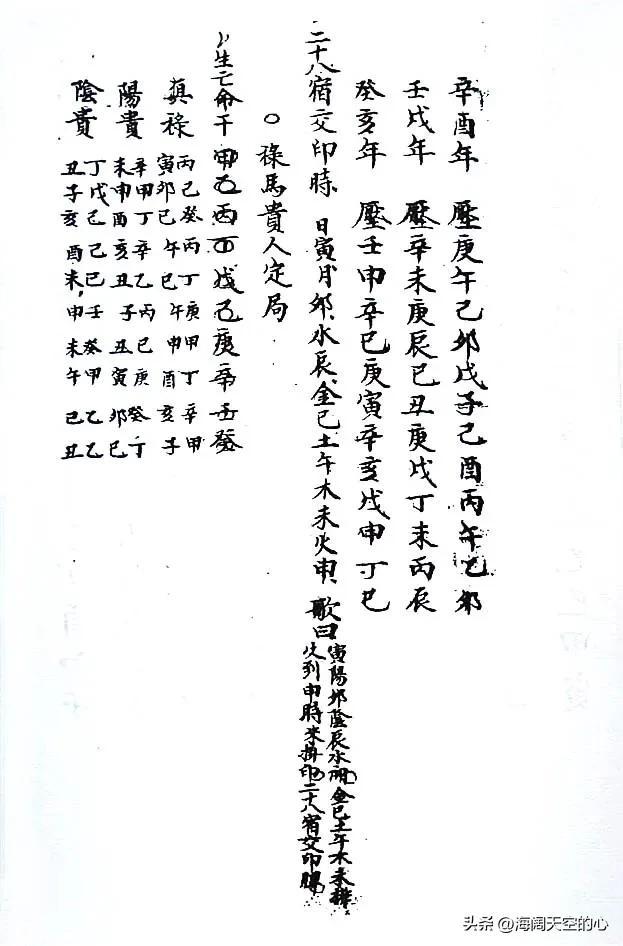 辛酉年 壓庚午己卯戊子己酉丙午乙卯
壬戌年 壓辛未庚辰己丑庚戌丁未丙辰
癸亥年 壓壬申辛巳庚寅辛亥戊申丁巳
二十八宿交印時 日寅月卯、水辰、金巳土午木未火申、歌曰
寅陽卯陰辰水 金巳土午木未排
火列申時来掛印 二十八宿交印
○ 祿馬貴人定局
生亡命干 甲乙丙丁戊己庚辛壬癸
真祿
丙己癸丙丁庚甲丁辛甲
寅卯巳午巳午申酉亥子
陽貴
辛甲丁辛乙丙己庚癸丁
未申酉亥丑子丑寅卯巳
陰貴
丁戊己己己壬癸甲乙乙
丑子亥酉未,申未午巳丑
头条 @海阔天空的心